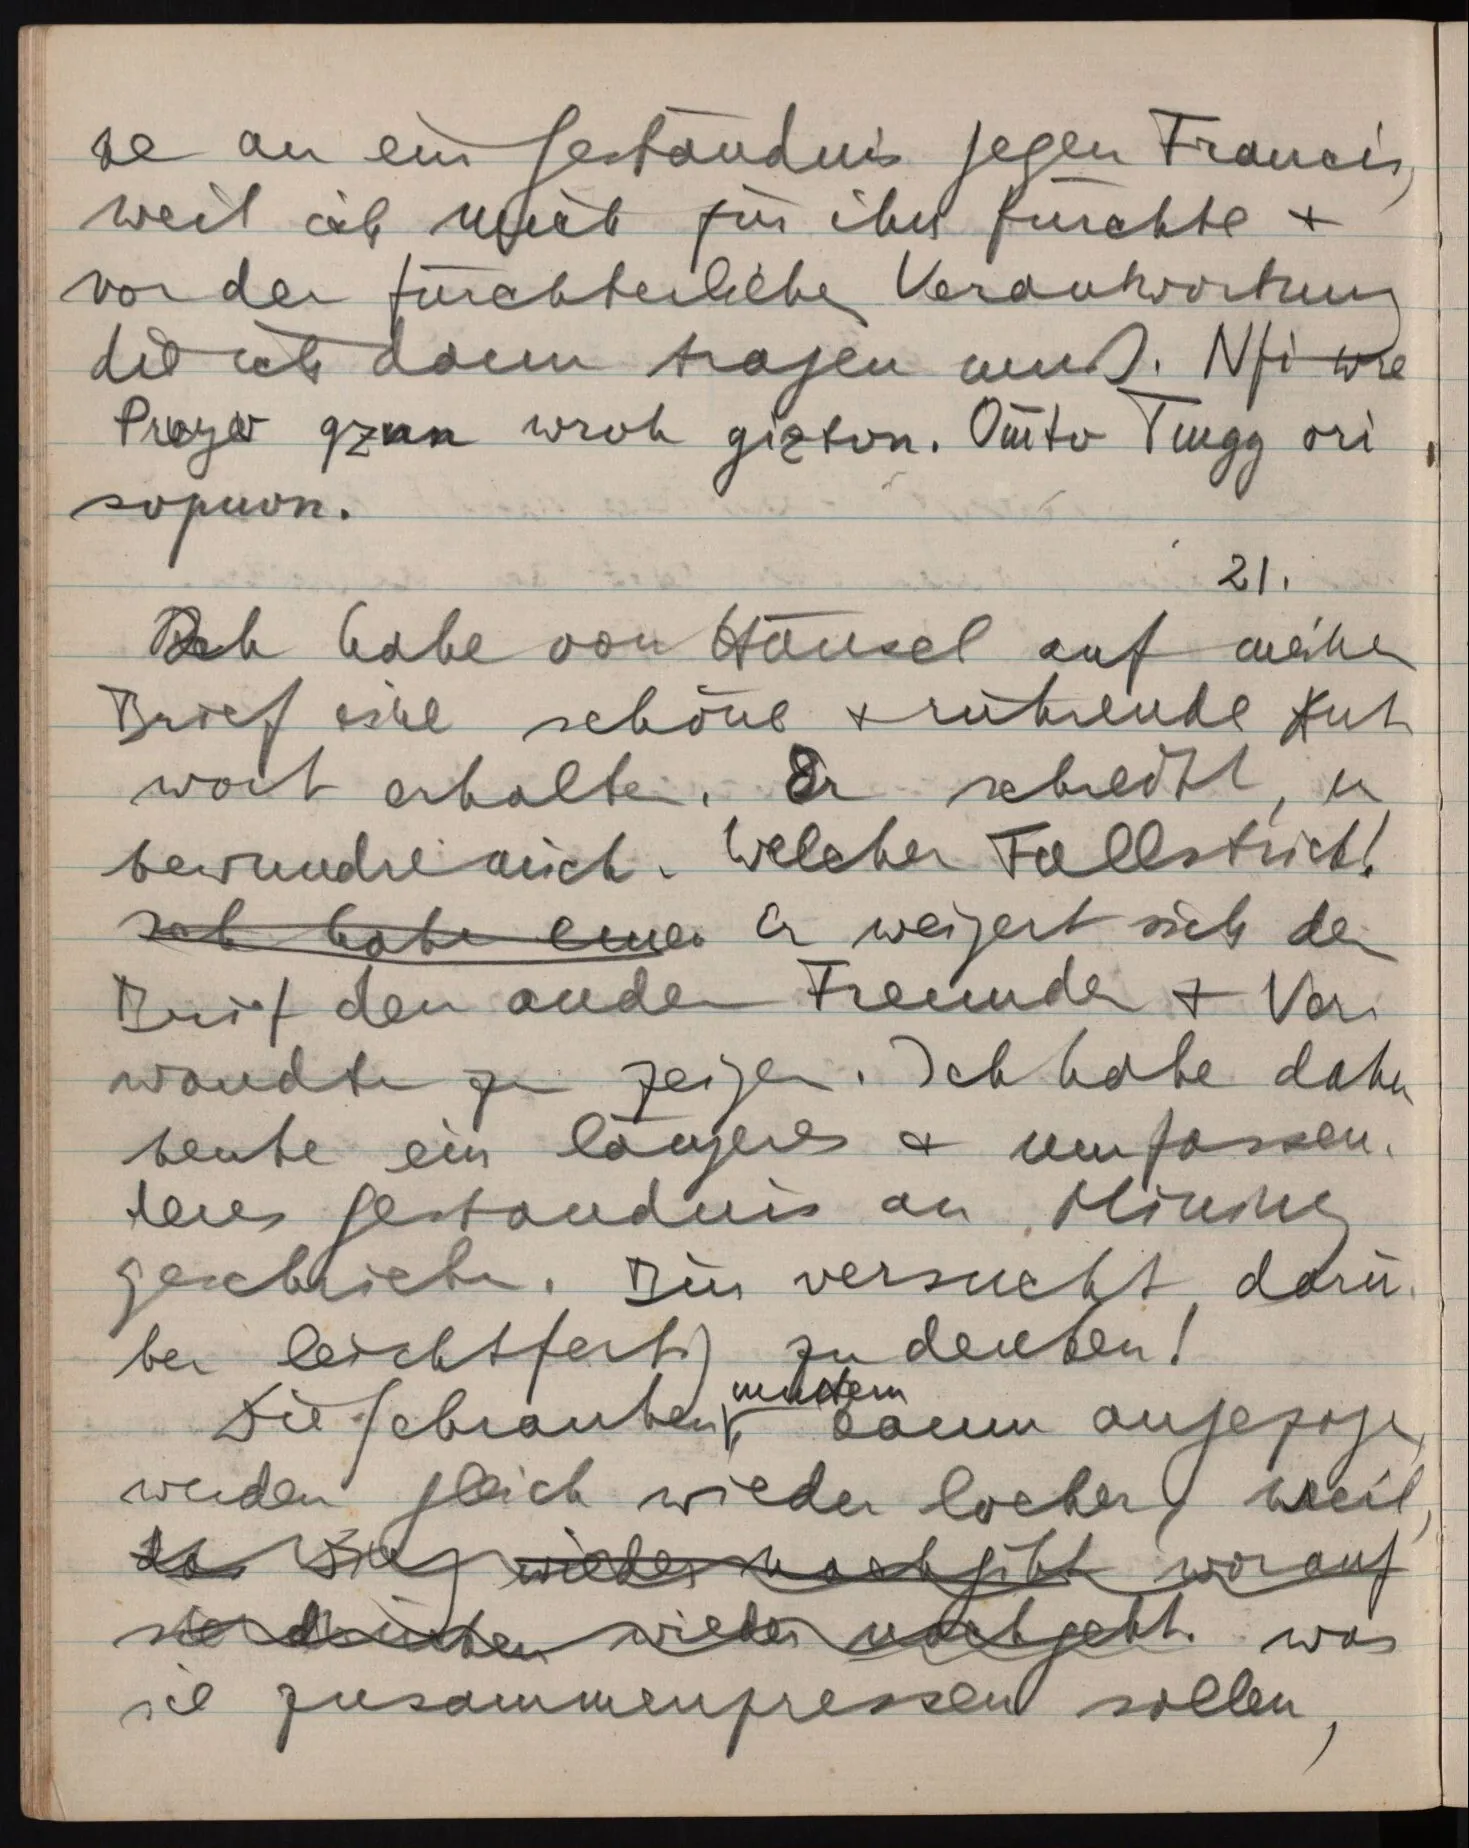 ke an ein Geständnis gegen Francis,
weil ich mich für ihn fürchte +
vor der fürchterlichen Verantwortung
die ich dann tragen muß. Nfi wre
gznn wroh giztvn. Tmgg ori
sopuon.
21.
Ich habe von Hänsel auf meinen
Brief eine schöne + rührende Ant
wort erhalten. Er schreibt, er
bewundre mich. Welcher Fallstrick!
Ich habe einen Er weigert sich den
Brief den andern Freunden + Ver
wandten zu zeigen. Ich habe daher
heute ein längeres + umfassen-
deres Geständnis an Mining
geschrieben. Bin versucht, darü-
ber leichtfertig zu denken!
mustern
Die Schrauben kaum angezogen,
werden gleich wieder locker, weil,
das Ding wieder nachgibt worauf
sie drücken wieder nachgeht. was
sie zusammenpressen sollen,